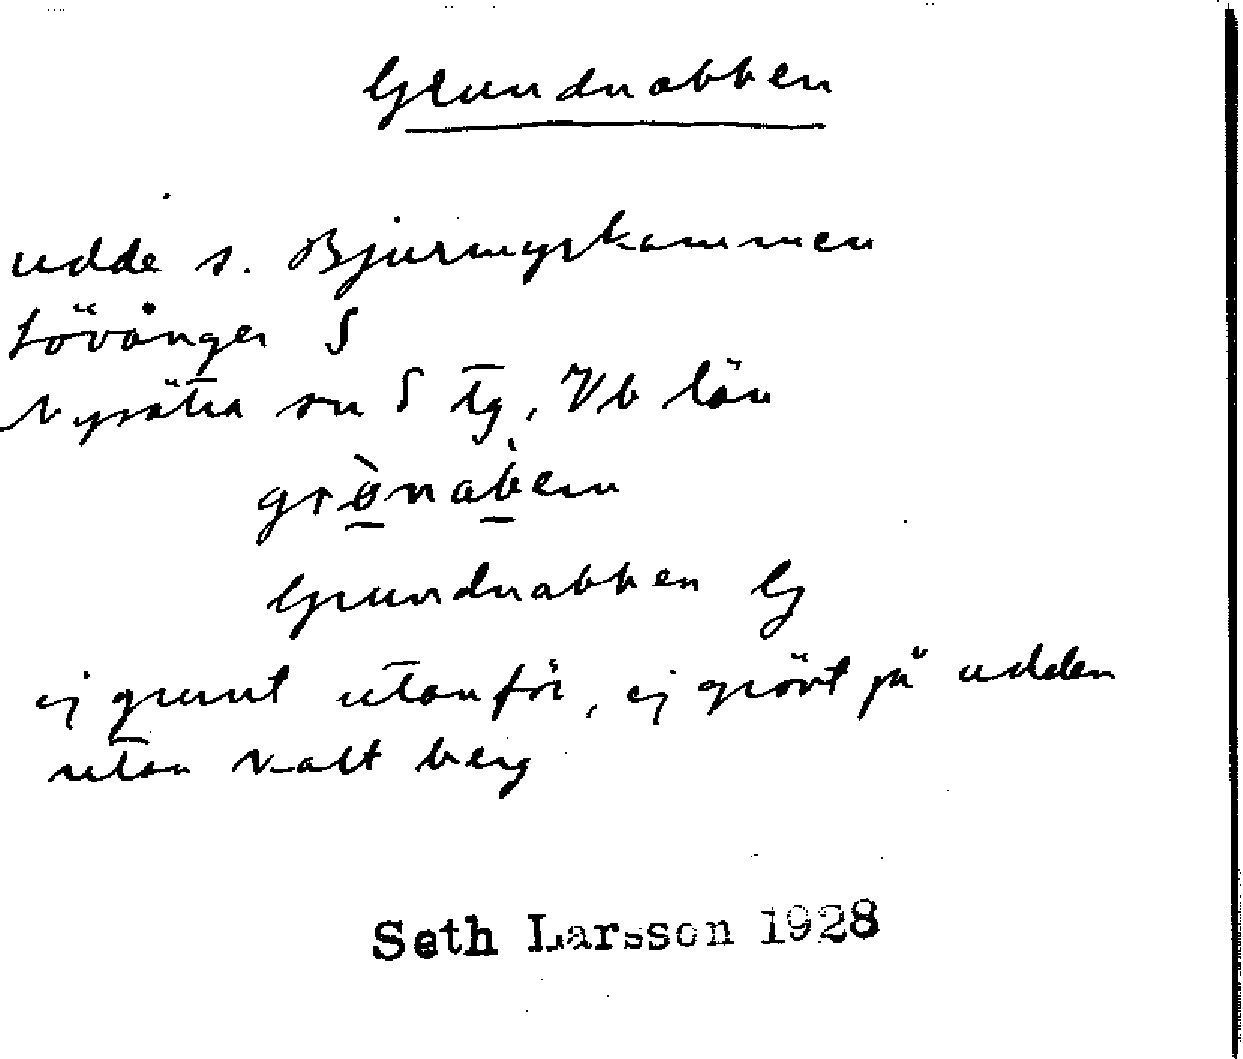 Grundnabben
udde s. Bjurmyrkammen
Lövånger S
Nysätra sn S tg, Vb län
grònàben
Grundnabben G
ej grunt utanför, ej grönt på udden
utan kalt berg
Seth Larsson 1928